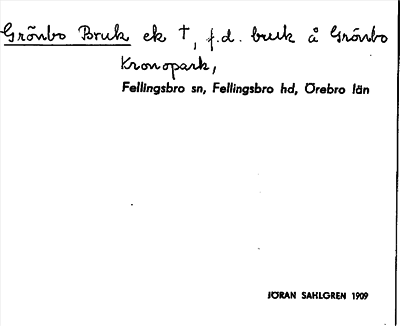 Grönbo Bruk ek †, f.d. bruk å Grönbo
Kronopark,
Fellingsbro sn, Fellingsbro hd, Örebro län
JÖRAN SAHLGREN 1909